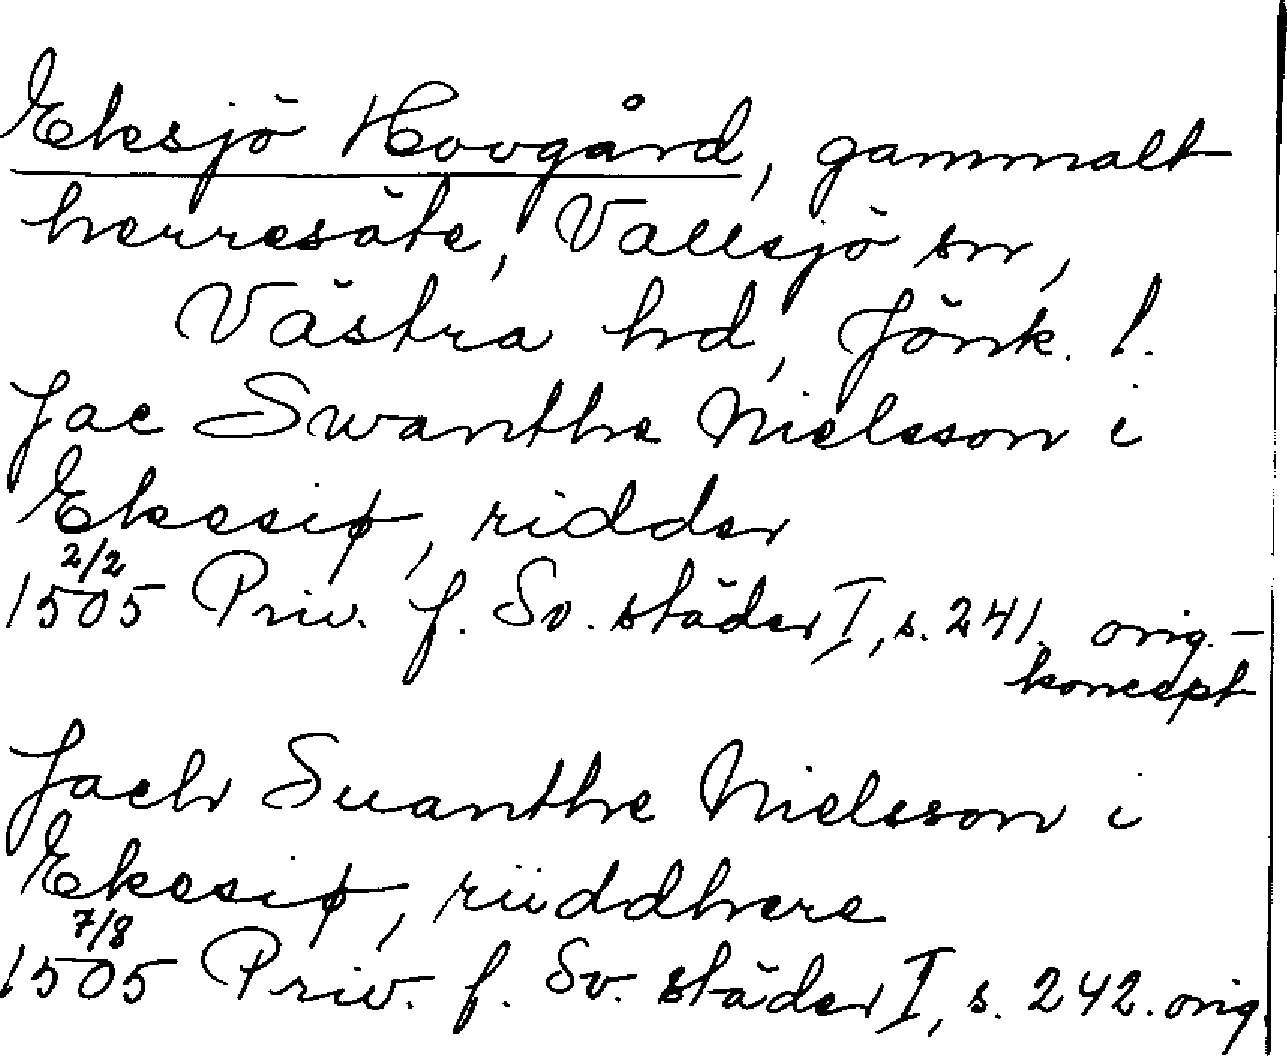 Eksjö Hovgård, gammalt
herresäte, Vallsjö sn,
Västra hd, Jönk. l.
Jac Swanthe Nielsson i
Ekesiø, ridder
2/2
1505 Priv. f. Sv. städer I, s. 241. orig.-
koncept
Jach Suanthe Nielsson i
Ekesiø, riiddhere
7/8
1505 Priv. f. Sv. städer I, s. 242. orig.